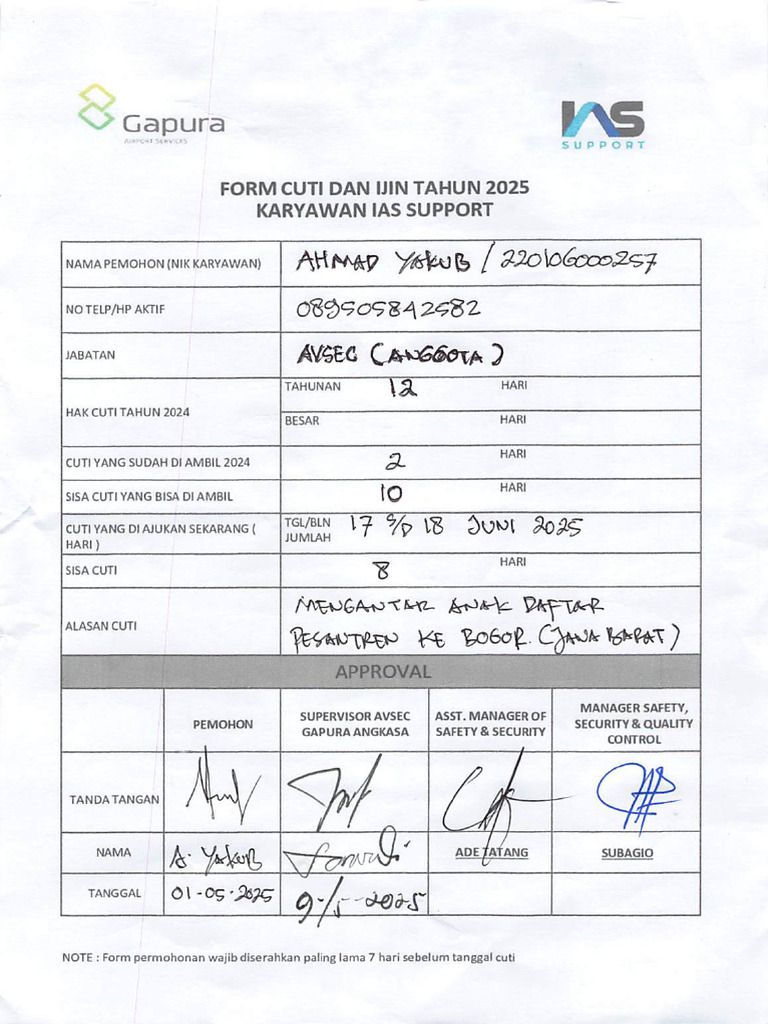 Gapura
AIRPORT SERVICES
IAS
SUPPORT
FORM CUTI DAN IJIN TAHUN 2025
KARYAWAN IAS SUPPORT
NAMA PEMOHON (NIK KARYAWAN) AHMAD YAKUB / 220106000257
NO TELP/HP AKTIF 089505842582
JABATAN AVSEC (ANGGOTA)
HAK CUTI TAHUN 2024 TAHUNAN 12 HARI
BESAR HARI
CUTI YANG SUDAH DI AMBIL 2024 2 HARI
SISA CUTI YANG BISA DI AMBIL 10 HARI
CUTI YANG DI AJUKAN SEKARANG ( HARI ) TGL/BLN JUMLAH 17 S/D 18 JUNI 2025
SISA CUTI 8 HARI
ALASAN CUTI MENGANTAR ANAK DAFTAR
PESANTREN KE BOGOR. (JAWA BARAT)
APPROVAL
PEMOHON SUPERVISOR AVSEC GAPURA ANGKASA ASST. MANAGER OF SAFETY & SECURITY MANAGER SAFETY, SECURITY & QUALITY CONTROL
TANDA TANGAN
NAMA A. YAKUB ADE TATANG SUBAGIO
TANGGAL 01-05-2025 9/5-2025
NOTE : Form permohonan wajib diserahkan paling lama 7 hari sebelum tanggal cuti